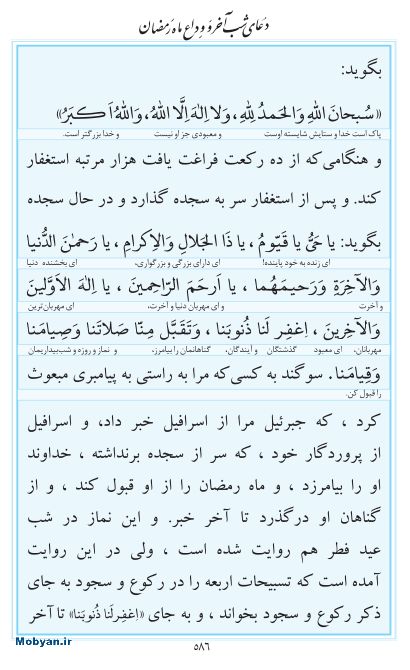 دعای شب آخر و وداع ماه رمضان
بگوید:
«سُبحانَ اللهِ وَالحَمدُ لِلّهِ، وَلا اِلٰهَ اِلَّا اللهُ، وَاللهُ اَکبَرُ»
پاک است خدا و ستایش شایسته اوست و معبودی جز او نیست و خدا بزرگتر است.
و هنگامی‌که از ده رکعت فراغت یافت هزار مرتبه استغفار
کند. و پس از استغفار سر به سجده گذارد و در حال سجده
بگوید: یا حَیُّ یا قَیّومُ، یا ذَا الجَلالِ وَالاِکرامِ، یا رَحمٰنَ الدُّنیا
ای زنده به خود پاینده! ای دارای بزرگی و بزرگواری، ای بخشنده دنیا
وَالآخِرَةِ وَرَحیمَهُما، یا اَرحَمَ الرّاحِمینَ، یا اِلٰهَ الاَوَّلینَ
و آخرت و ای مهربان دنیا و آخرت، ای مهربان‌ترین
وَالآخِرینَ، اِغفِر لَنا ذُنوبَنا، وَتَقَبَّل مِنّا صَلاتَنا وَصِیامَنا
مهربانان، ای معبود گذشتگان و آیندگان، گناهانمان را بیامرز، و نماز و روزه و شب‌بیداریمان
وَقِیامَنا. سوگند به کسی‌که مرا به راستی به پیامبری مبعوث
را قبول کن.
کرد، که جبرئیل مرا از اسرافیل خبر داد، و اسرافیل
از پروردگار خود، که سر از سجده برنداشته، خداوند
او را بیامرزد، و ماه رمضان را از او قبول کند، و از
گناهان او درگذرد تا آخر خبر. و این نماز در شب
عید فطر هم روایت شده است، ولی در این روایت
آمده است که تسبیحات اربعه را در رکوع و سجود به جای
ذکر رکوع و سجود بخواند، و به جای «اِغفِرلَنا ذُنوبَنا» تا آخر
Mobyan.ir
۵۸۶